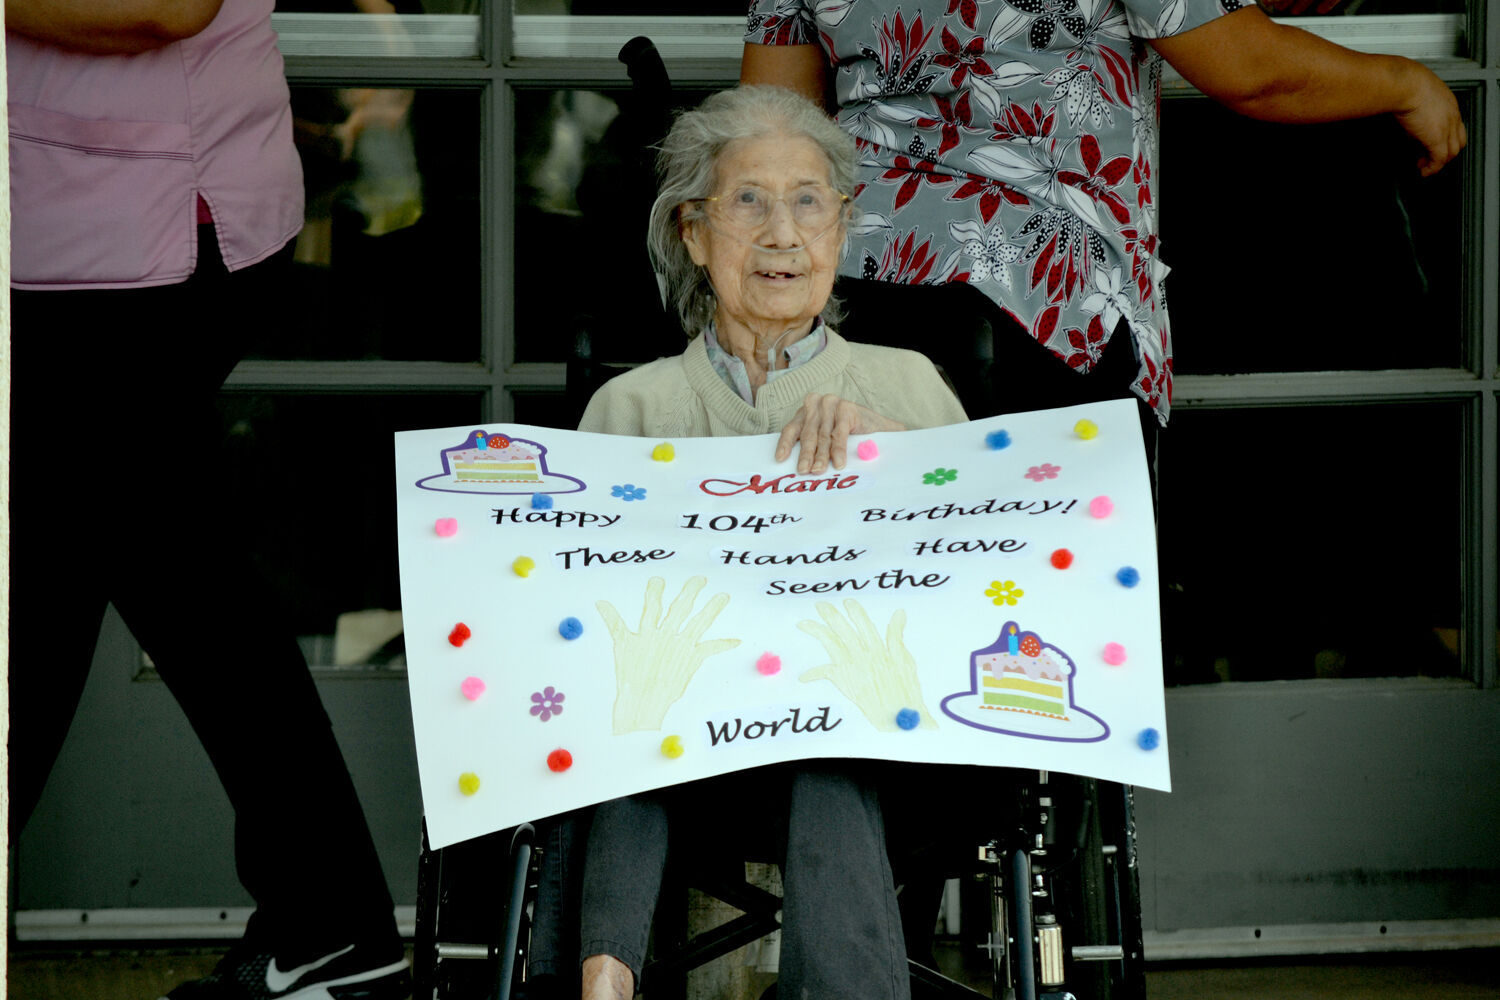 Marie
Happy 104th Birthday!
These Hands Have
Seen the
World